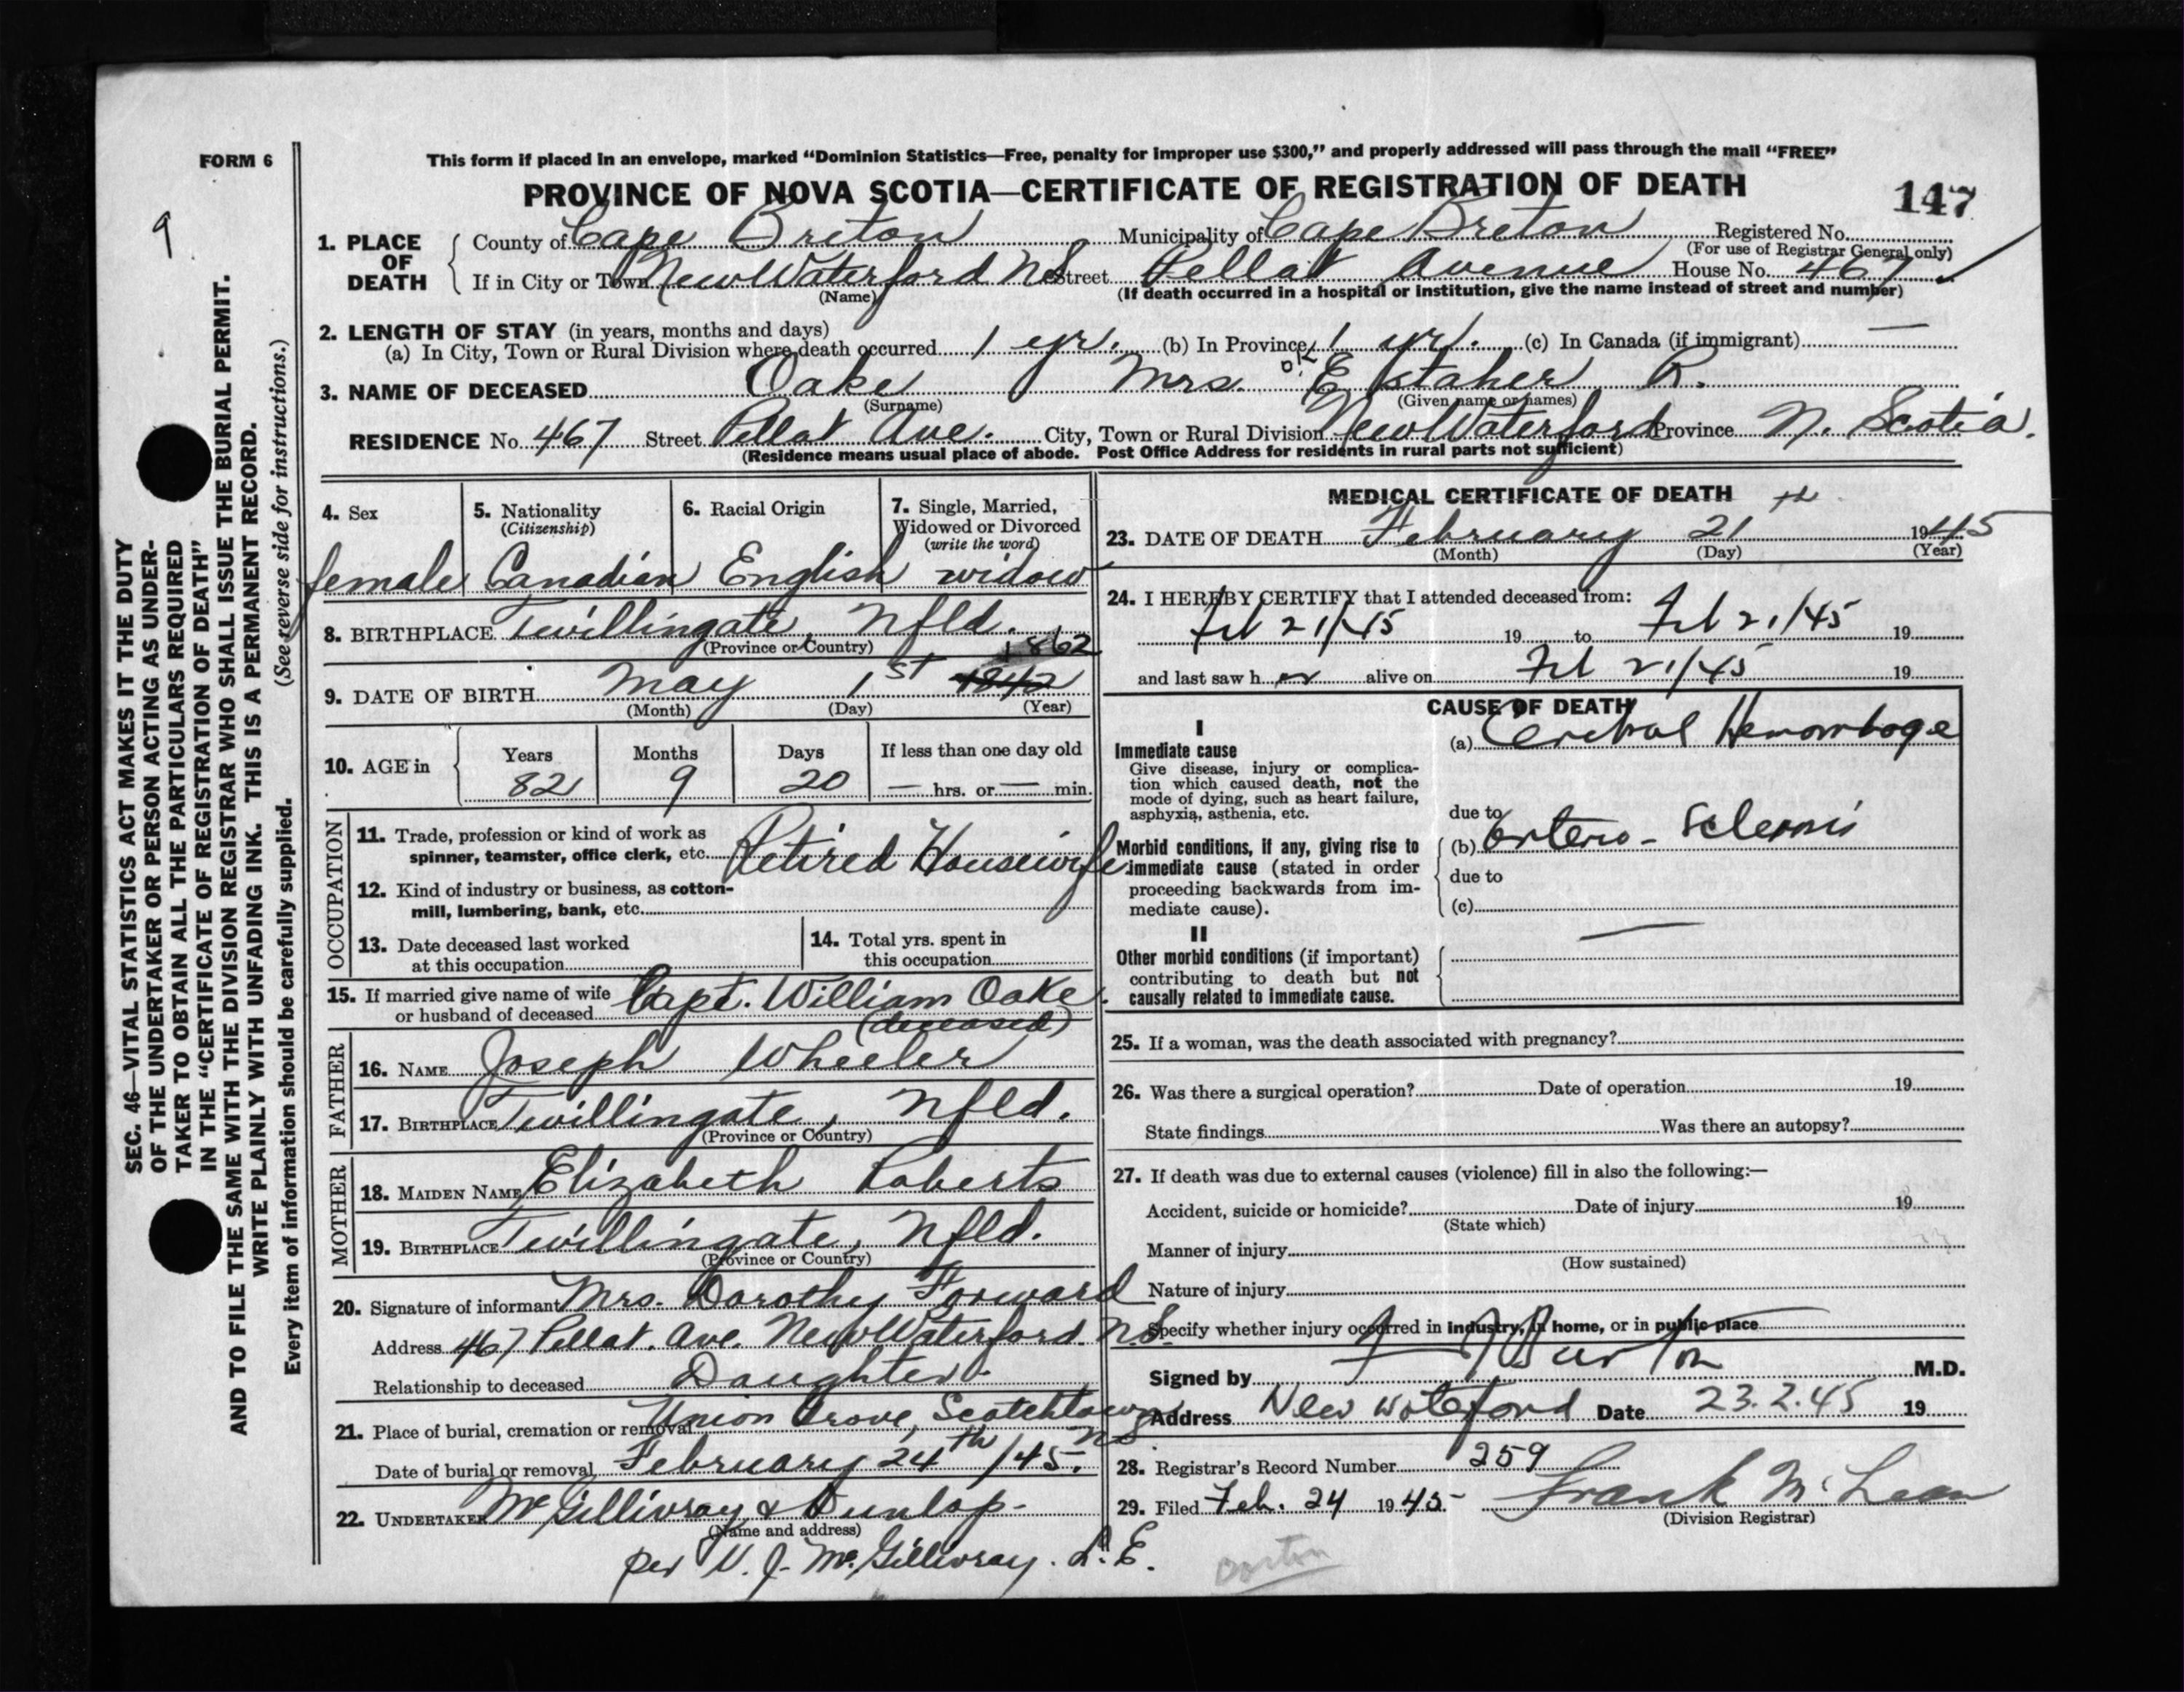 FORM 6
9
SEC. 46—VITAL STATISTICS ACT MAKES IT THE DUTY
OF THE UNDERTAKER OR PERSON ACTING AS UNDER-
TAKER TO OBTAIN ALL THE PARTICULARS REQUIRED
IN THE "CERTIFICATE OF REGISTRATION OF DEATH"
AND TO FILE THE SAME WITH THE DIVISION REGISTRAR WHO SHALL ISSUE THE BURIAL PERMIT.
WRITE PLAINLY WITH UNFADING INK. THIS IS A PERMANENT RECORD.
(See reverse side for instructions.)
Every item of information should be carefully supplied.
This form if placed in an envelope, marked "Dominion Statistics—Free, penalty for improper use $300," and properly addressed will pass through the mail "FREE"
PROVINCE OF NOVA SCOTIA—CERTIFICATE OF REGISTRATION OF DEATH
147
1. PLACE OF DEATH
County of Cape Breton Municipality of Cape Breton Registered No.
(For use of Registrar General only)
If in City or Town New Waterford NS Street Pellat Avenue House No. 467
(Name) (If death occurred in a hospital or institution, give the name instead of street and number)
2. LENGTH OF STAY (in years, months and days)
(a) In City, Town or Rural Division where death occurred 1 yr. (b) In Province 1 yr. (c) In Canada (if immigrant) —
3. NAME OF DECEASED Oake Mrs. Estaher R.
(Surname) (Given name or names)
RESIDENCE No. 467 Street Pellat Ave. City, Town or Rural Division New Waterford Province N. Scotia.
(Residence means usual place of abode. Post Office Address for residents in rural parts not sufficient)
4. Sex
female
5. Nationality
(Citizenship)
Canadian
6. Racial Origin
English
7. Single, Married,
Widowed or Divorced
(write the word)
widow
8. BIRTHPLACE Twillingate, Nfld.
(Province or Country)
1862
9. DATE OF BIRTH May 1st 1842
(Month) (Day) (Year)
10. AGE in
Years Months Days If less than one day old
82 9 20 — hrs. or — min.
OCCUPATION
11. Trade, profession or kind of work as
spinner, teamster, office clerk, etc. Retired Housewife
12. Kind of industry or business, as cotton-
mill, lumbering, bank, etc.
13. Date deceased last worked
at this occupation
14. Total yrs. spent in
this occupation
15. If married give name of wife
or husband of deceased Capt. William Oake.
(deceased)
FATHER
16. NAME Joseph Wheeler
17. BIRTHPLACE Twillingate, Nfld.
(Province or Country)
MOTHER
18. MAIDEN NAME Elizabeth Roberts
19. BIRTHPLACE Twillingate, Nfld.
(Province or Country)
20. Signature of informant Mrs. Dorothy Forward
Address 467 Pellat. Ave. New Waterford. N.S.
Relationship to deceased Daughter.
21. Place of burial, cremation or removal Union Grove, Scotchtown
NS
Date of burial or removal February 24th/45.
22. UNDERTAKER McGillivray & Dunlop.
(Name and address)
per V. J. McGillivray. L.E.
MEDICAL CERTIFICATE OF DEATH
23. DATE OF DEATH February 21th 1945
(Month) (Day) (Year)
24. I HEREBY CERTIFY that I attended deceased from:
Feb 21/45 19 to Feb 21/45 19
and last saw h er alive on Feb 21/45 19
CAUSE OF DEATH
I
Immediate cause
Give disease, injury or complica-
tion which caused death, not the
mode of dying, such as heart failure,
asphyxia, asthenia, etc.
(a) Cerebral Hemorrhage
due to
Morbid conditions, if any, giving rise to
immediate cause (stated in order
proceeding backwards from im-
mediate cause).
(b) artero-Sclerosis
due to
(c)
II
Other morbid conditions (if important)
contributing to death but not
causally related to immediate cause.
25. If a woman, was the death associated with pregnancy?
26. Was there a surgical operation? Date of operation 19
State findings Was there an autopsy?
27. If death was due to external causes (violence) fill in also the following:—
Accident, suicide or homicide? Date of injury 19
(State which)
Manner of injury
(How sustained)
Nature of injury
Specify whether injury occurred in industry, in home, or in public place
Signed by Burton M.D.
Address New Waterford Date 23.2.45 19
28. Registrar's Record Number 259
29. Filed Feb. 24 1945 Frank McLean
(Division Registrar)